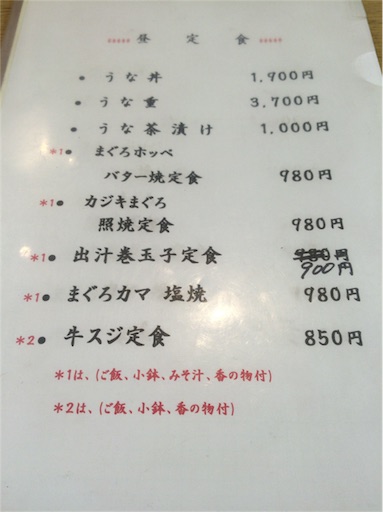 ***** 昼 定 食 *****
● うな丼 1,900円
● うな重 3,700円
● うな茶漬け 1,000円
*1● まぐろホッペ
バター焼定食 980円
*1● カジキまぐろ
照焼定食 980円
*1● 出汁巻玉子定食 980円
900円
*1● まぐろカマ 塩焼 980円
*2● 牛スジ定食 850円
*1は、(ご飯、小鉢、みそ汁、香の物付)
*2は、(ご飯、小鉢、香の物付)